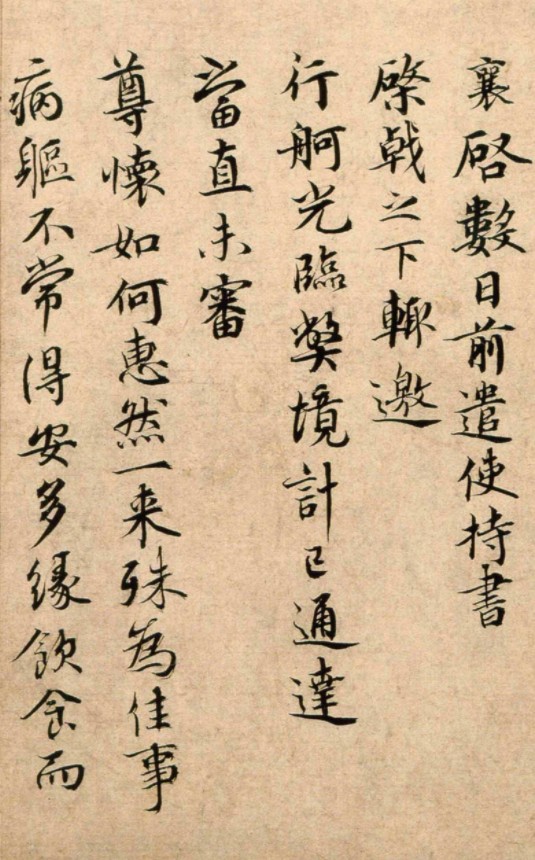 襄啓數日前遣使持書
棨戟之下輙邀
行舸光臨獘境計已通達
當直未審
尊懷如何惠然一来殊為佳事
病軀不常得安多緣飲食而